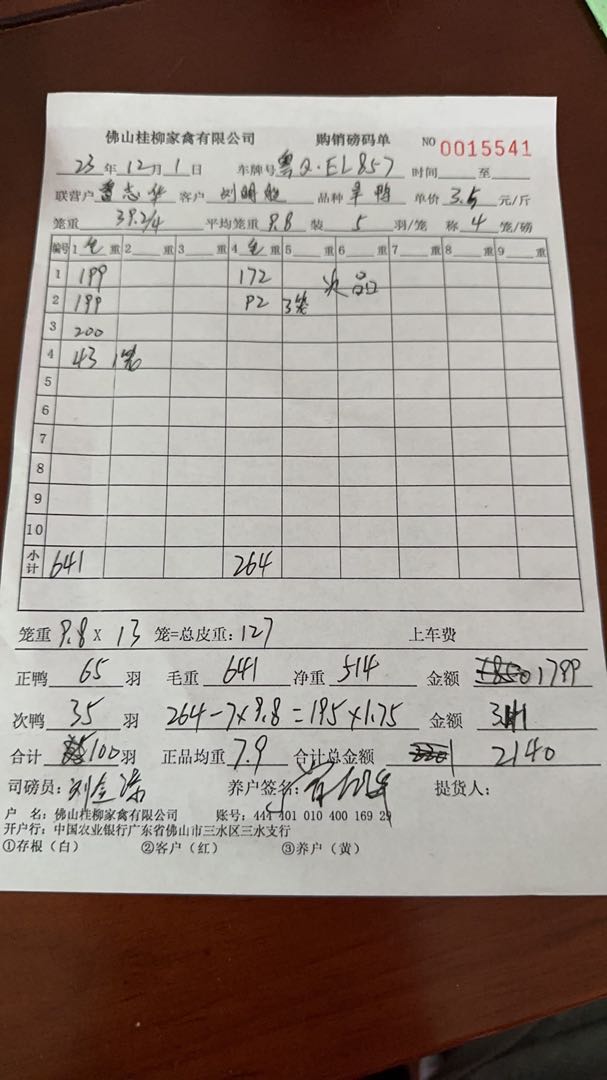 佛山桂柳家禽有限公司 购销磅码单 NO 0015541
23年12月1日 车牌号粤Q·EL857 时间 至
联营户 志华 客户 刘明 品种 鸭 单价 3.5 元/斤
笼重 39.2/4 平均笼重 9.8 装 5 羽/笼 称 4 笼/磅
编号 1毛重 2 重 3 重 4毛重 5 重 6 重 7 重 8 重 9 重
1 199 172 次品
2 199 92 3笼
3 200
4 43 1笼
5
6
7
8
9
10
小计 641 264
笼重 9.8 × 13 笼=总皮重: 127 上车费
正鸭 65 羽 毛重 641 净重 514 金额 1799
次鸭 35 羽 264-7×9.8=195×1.75 金额 341
合计 100羽 正品均重 7.9 合计总金额 2140
司磅员: 刘金 养户签名: 提货人:
户 名: 佛山桂柳家禽有限公司 账号: 444 401 010 400 169 29
开户行: 中国农业银行广东省佛山市三水区三水支行
①存根(白) ②客户(红) ③养户(黄)